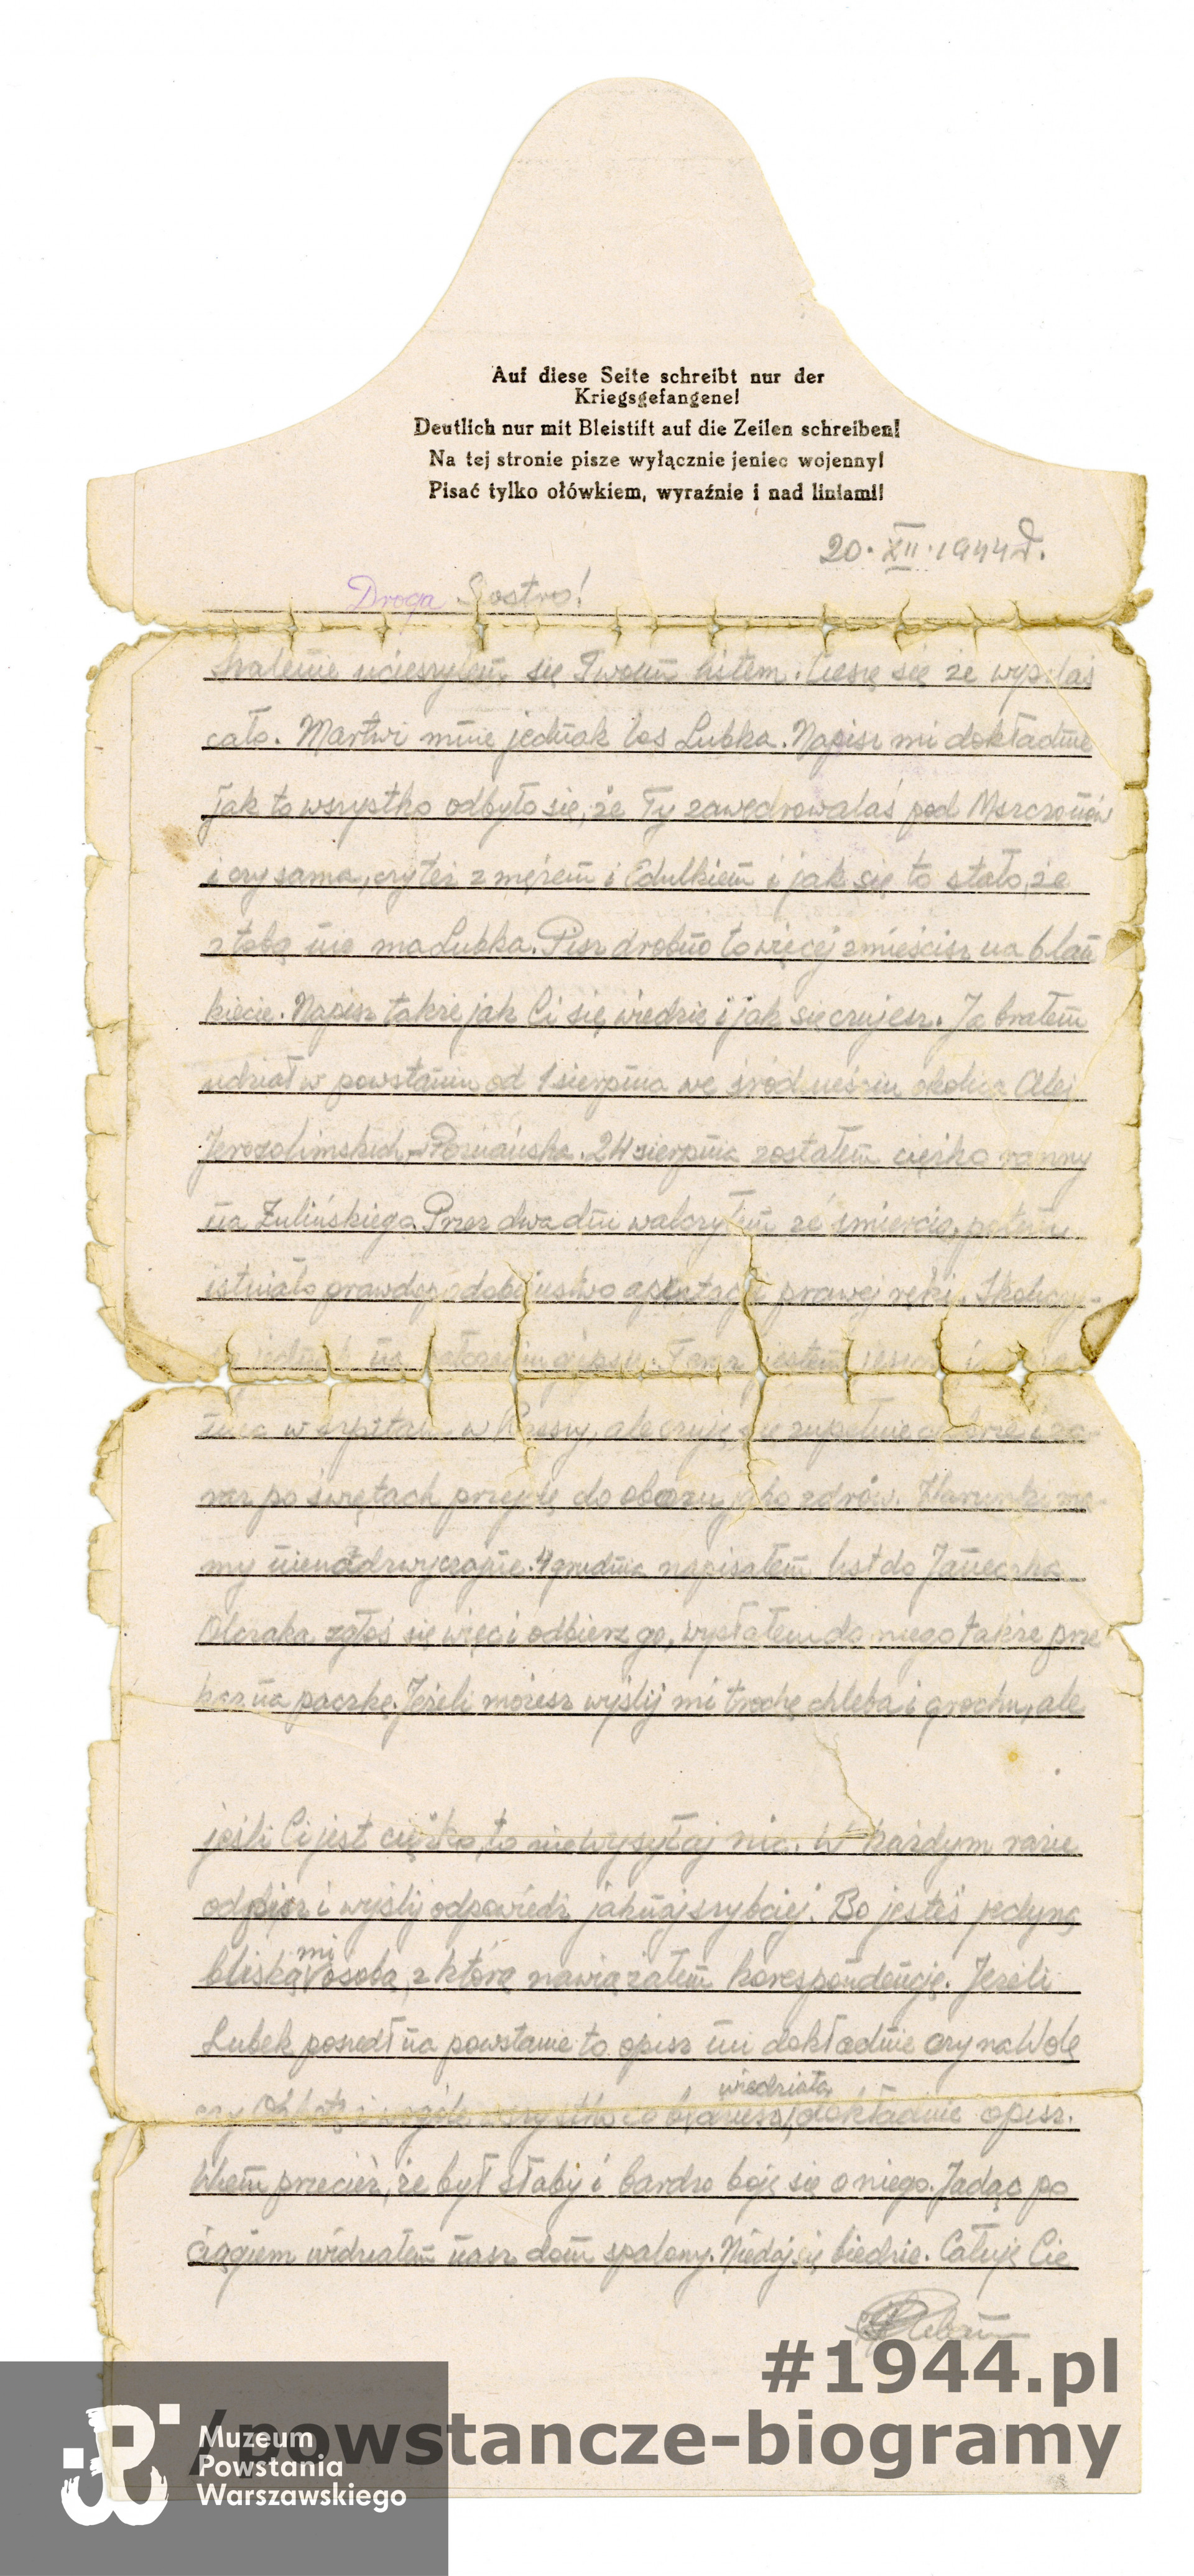 Auf diese Seite schreibt nur der
Kriegsgefangene!
Deutlich nur mit Bleistift auf die Zeilen schreiben!
Na tej stronie pisze wyłącznie jeniec wojenny!
Pisać tylko ołówkiem, wyraźnie i nad liniami!
20. XII. 1944 r.
Droga Siostro!
Szalenie ucieszyłem się Twoim listem. Cieszę się że wyszłaś
cało. Martwi mnie jednak los Lubka. Napisz mi dokładnie
jak to wszystko odbyło się, że Ty zawędrowałaś pod Mszczonów
i czy sama, czy też z mężem i Edulkiem i jak się to stało, że
z tobą nie ma Lubka. Pisz drobno to więcej zmieścisz na blan
kiecie. Napisz także jak Ci się wiedzie i jak się czujesz. Ja brałem
udział w powstaniu od 1 sierpnia we śródmieściu okolica Alei
Jerozolimskich - Poznańska. 24 sierpnia zostałem ciężko ranny
na Żulińskiego. Przez dwa dni walczyłem ze śmiercią, potem
istniało prawdopodobieństwo prawej ręki. Skończy-
ło jednak na gipsu. Teraz jestem
w szpitalu w ale czuję się zupełnie dobrze i za-
raz po świętach przejdę do obozu jako zdrów. Warunki ma-
my 4 grudnia napisałem list do Janeczka
Olczaka zgłoś się więc i odbierz go, wysłałem do niego także prze
kaz na paczkę. Jeżeli możesz wyślij mi trochę chleba i grochu, ale
jeśli Ci jest ciężko, to nie wysyłaj nic. W każdym razie
odpisz i wyślij odpowiedź jaknajszybciej. Bo jesteś jedyną
bliską mi osobą, z którą nawiązałem korespondencję. Jeżeli
Lubek poszedł na powstanie to opisz mi dokładnie czy na Wolę
czy Ochotę i wogóle wszystko co będziesz wiedziała dokładnie opisz.
Wiem przecież, że był słaby i bardzo boję się o niego. Jadąc po
ciągiem widziałem nasz dom spalony. Niedaj się biedzie. Całuję Cie
#1944.pl
/powstancze-biogramy
Muzeum
Powstania
Warszawskiego